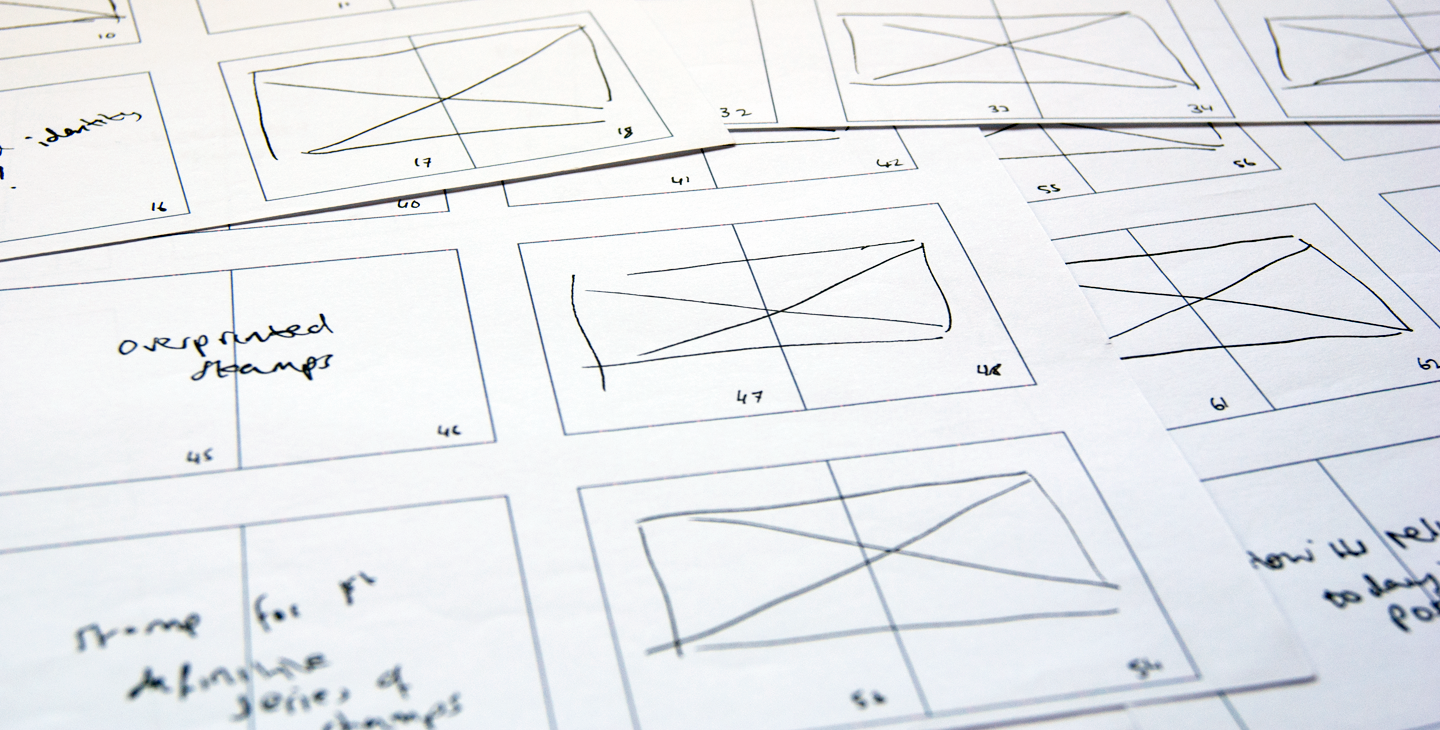 10
identity
16
17
18
32
33
34
40
41
42
55
56
overprinted
stamps
45
46
47
48
61
62
stamp for
definitive
series of
stamps
54
how its
today